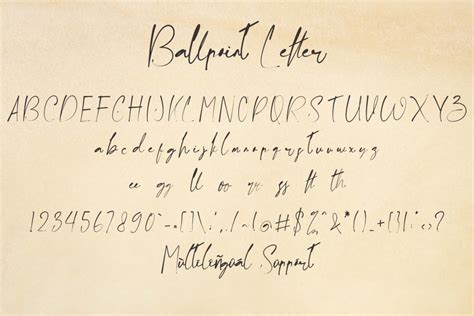 Ballpoint Letter
ABCDEFGHIJKLMNOPQRSTUVWXYZ
abcdefghijklmnopqrstuvwxyz
ee gg ll oo rr ss tt th
1234567890`-=[]\;',./~@#$%^&*()_+{}|:<>?
Multilingual Support